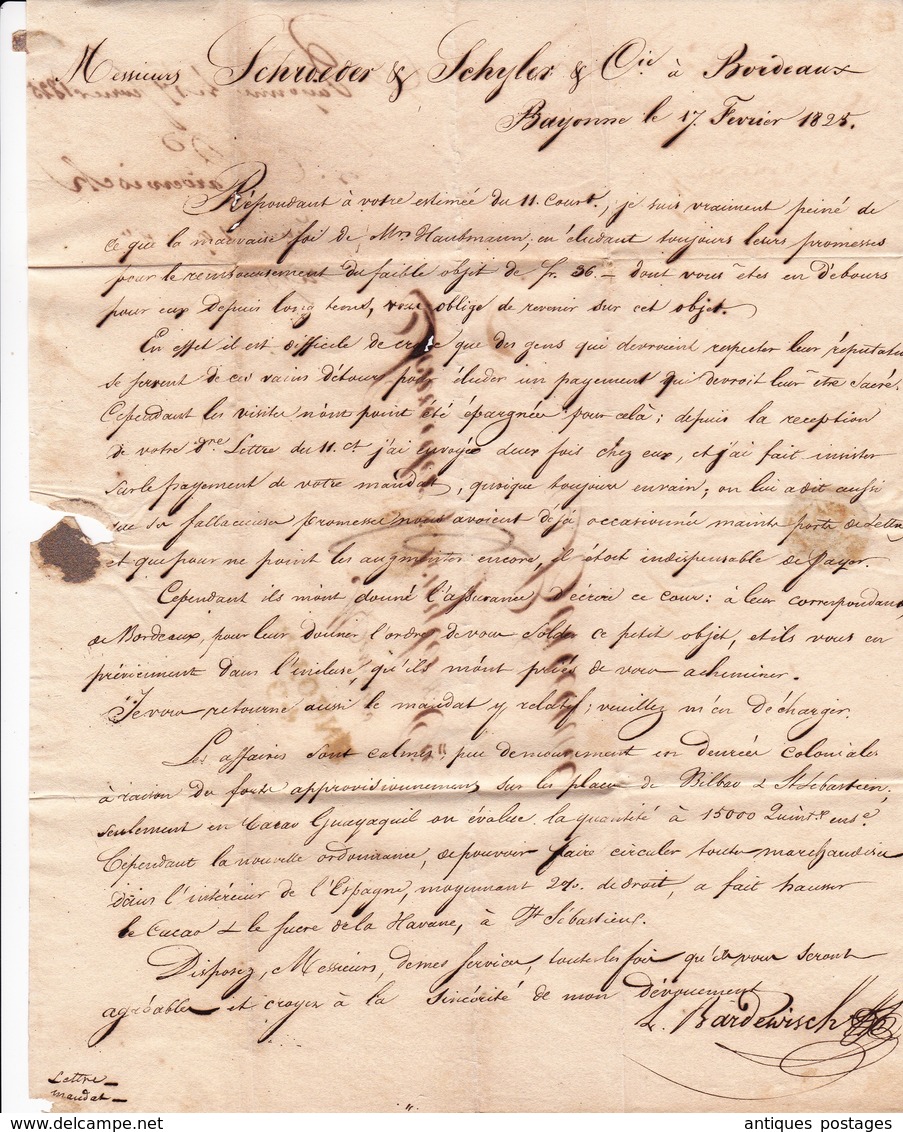 Messieurs Schroeder & Schyler & Cie à Bordeaux
Bayonne le 17. Fevrier 1825.
Répondant à votre estimée du 11. Court., je suis vraiment peiné de
ce que la mauvaise foi de Mrs Haubmann, en éludant toujours leurs promesses
pour le remboursement du faible objet de fr. 36.— dont vous êtes en Debours
pour eux depuis long tems, vous oblige de revenir sur cet objet.
En effet il est difficile de croire que des gens qui devroient respecter leur réputation
se servent de ces vains détours pour éluder un payement qui devroit leur être sacré.
Cependant les visites n'ont point été épargnées pour celà; depuis la reception
de votre dre Lettre du 11. ct. j'ai envoyée deux fois chez eux, et j'ai fait insister
sur le payement de votre mandat, quoique toujours en vain, on lui a dit aussi
que ses fallacieuses promesses nous avoient déjà occasionnée maints ports de Lettres
et que pour ne point les augmenter encore, il étoit indispensable de payer.
Cependant ils m'ont donné l'assurance d'écrire ce cour: à leur correspondant
de Bordeaux, pour leur donner l'ordre de vous solder ce petit objet, et ils vous en
préviennent dans l'incluse, qu'ils m'ont priés de vous acheminer.
Je vous retourne aussi le mandat y relatif; veuillez m'en décharger.
Les affaires sont calmes, peu de mouvement en denrées coloniales
à raison du forts approvisionnemens sur les places de Bilbao & St Sébastien,
seulement en Cacao Guayaquil on évalue la quantité à 15000 Quintx ense.
Cependant la nouvelle ordonnance, de pouvoir faire circuler toutes marchandises
dans l'intérieur de l'Espagne, moyennant 2% de droit, a fait hausser
le Cacao & le sucre de la Havane, à St Sébastien.
Disposez, Messieurs, de mes services, toutes les fois qu'ils vous seront
agréables et croyez à la sincérité de mon dévouement
L. Bardewisch
Lettre —
mandat —
antiques postages